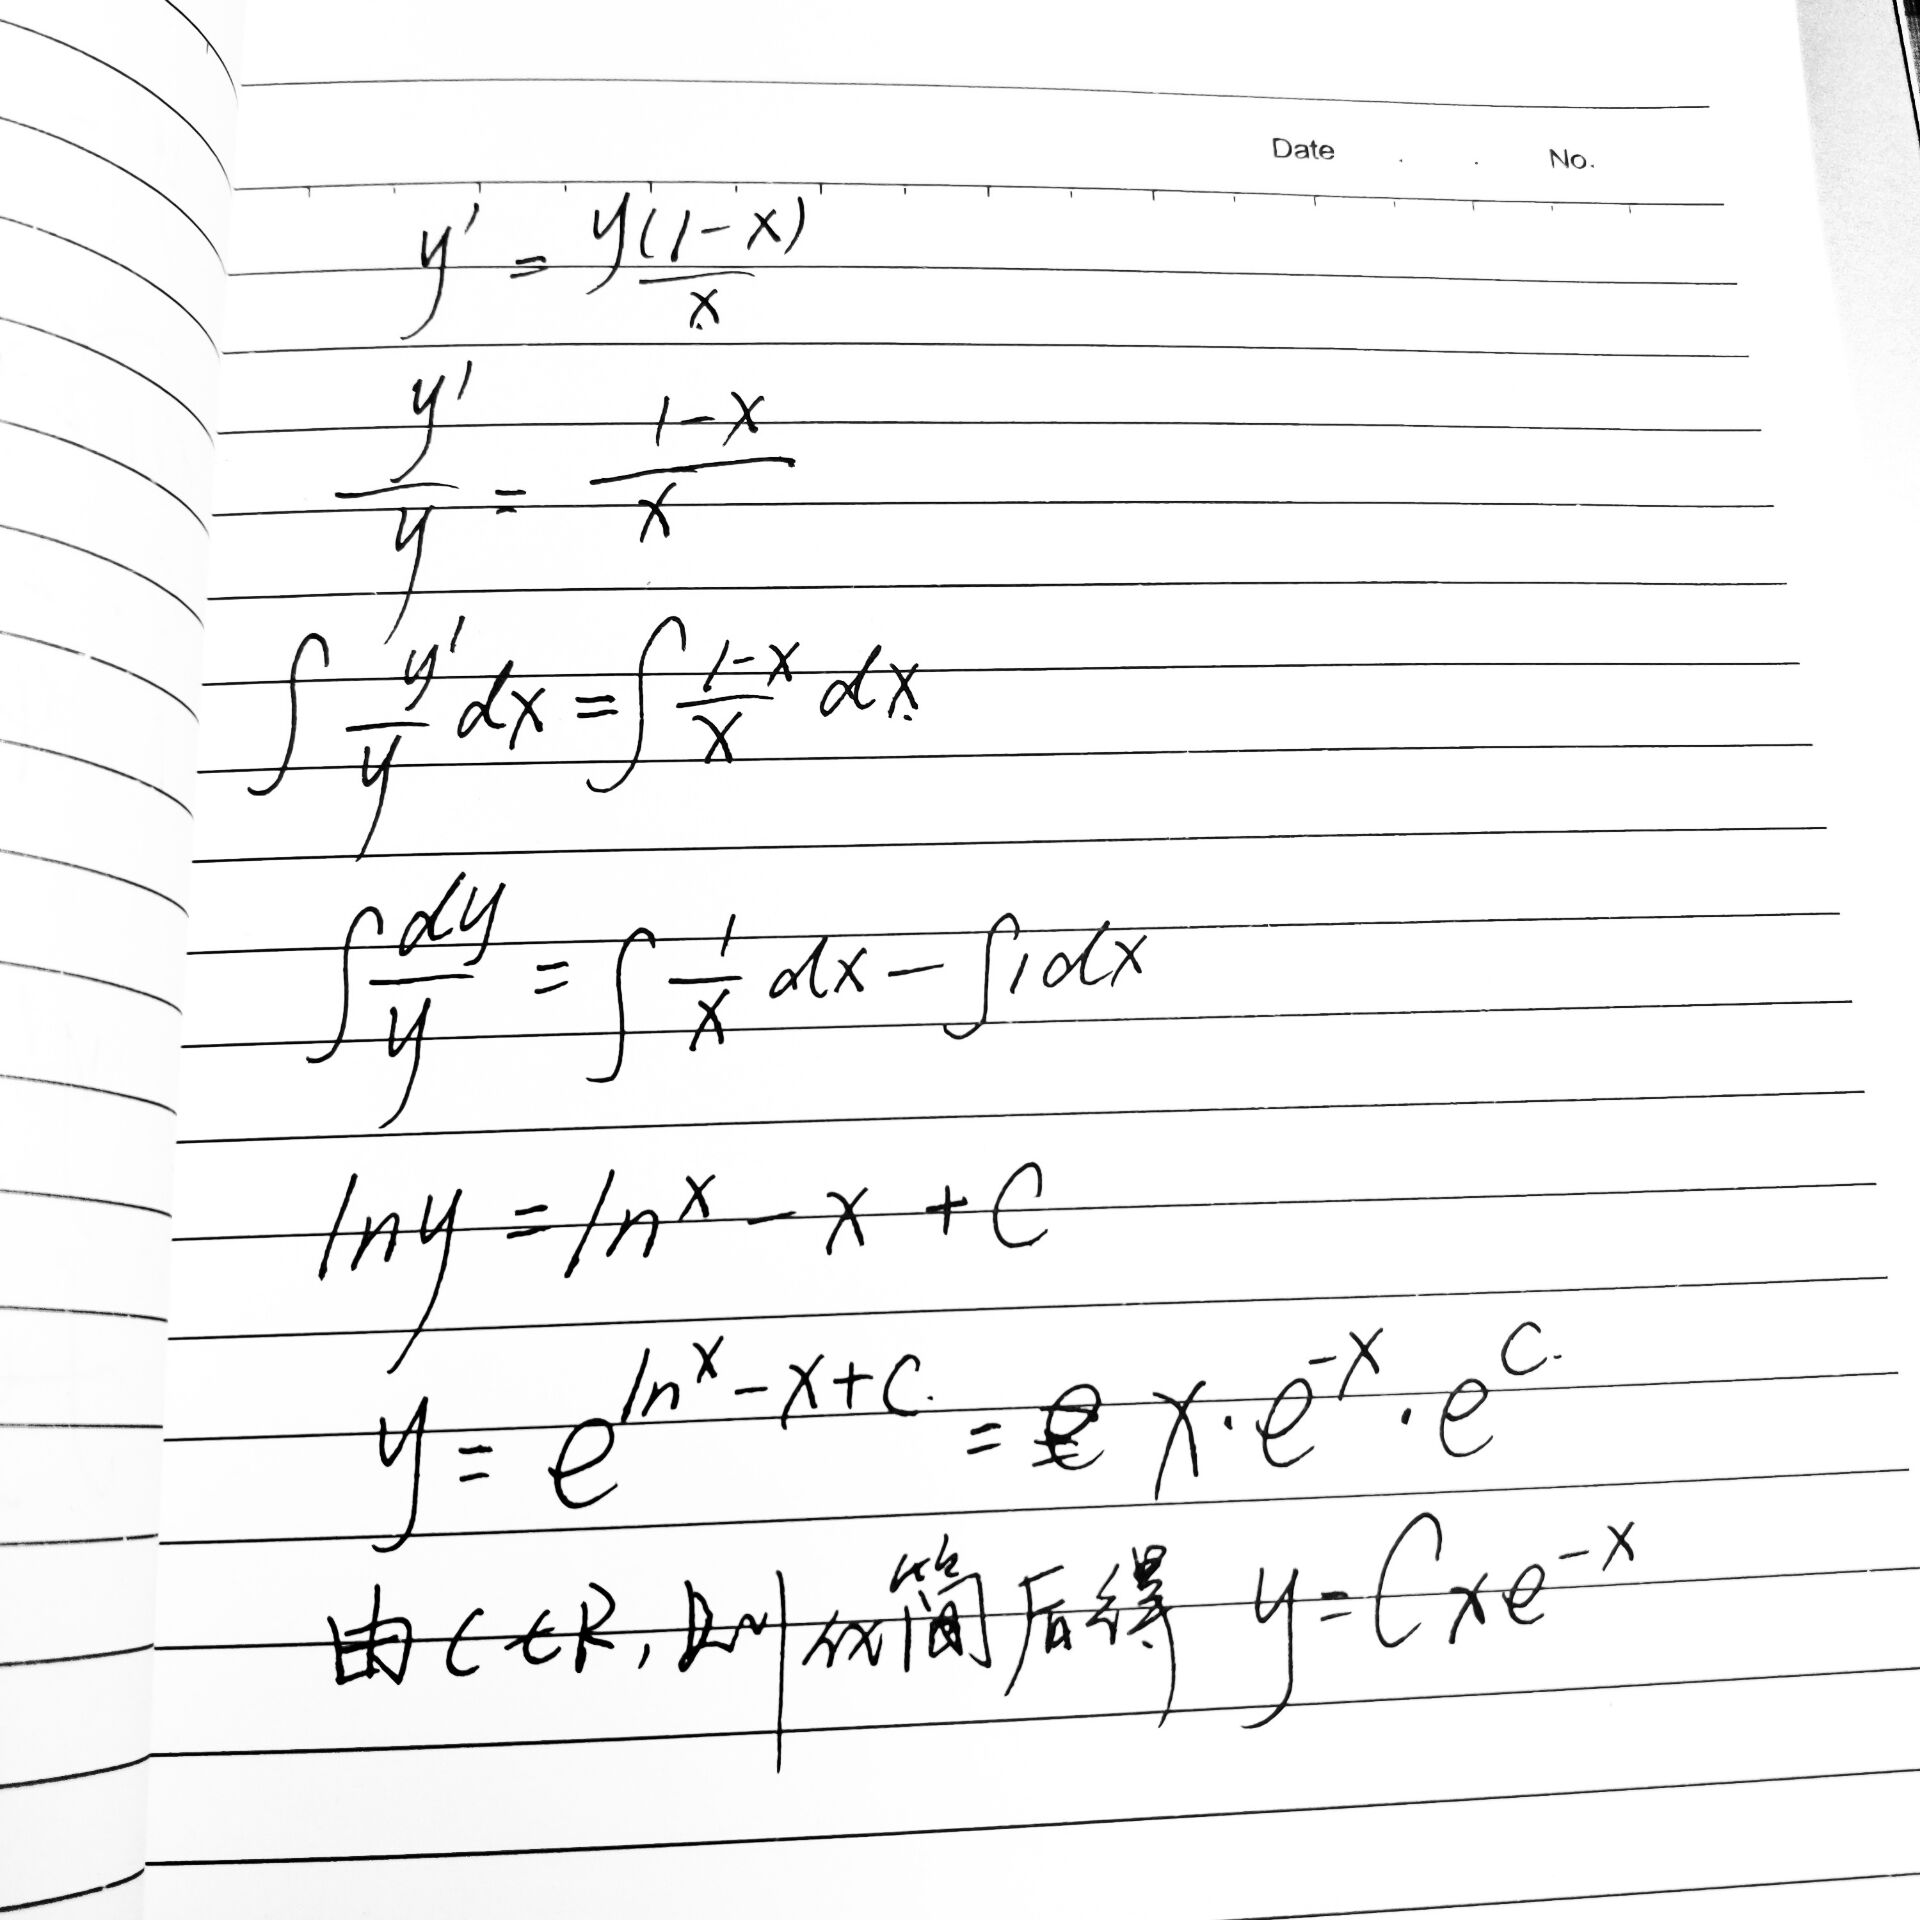 Date . . No.
y' = y(1-x)/x
y'/y = (1-x)/x
∫ y'/y dx = ∫ (1-x)/x dx
∫ dy/y = ∫ 1/x dx - ∫ 1 dx
lny = ln^x - x + C
y = e^(ln^x - x + C.) = x·e^(-x)·e^(C.)
由C∈R,则化简后得 y=Cxe^(-x)